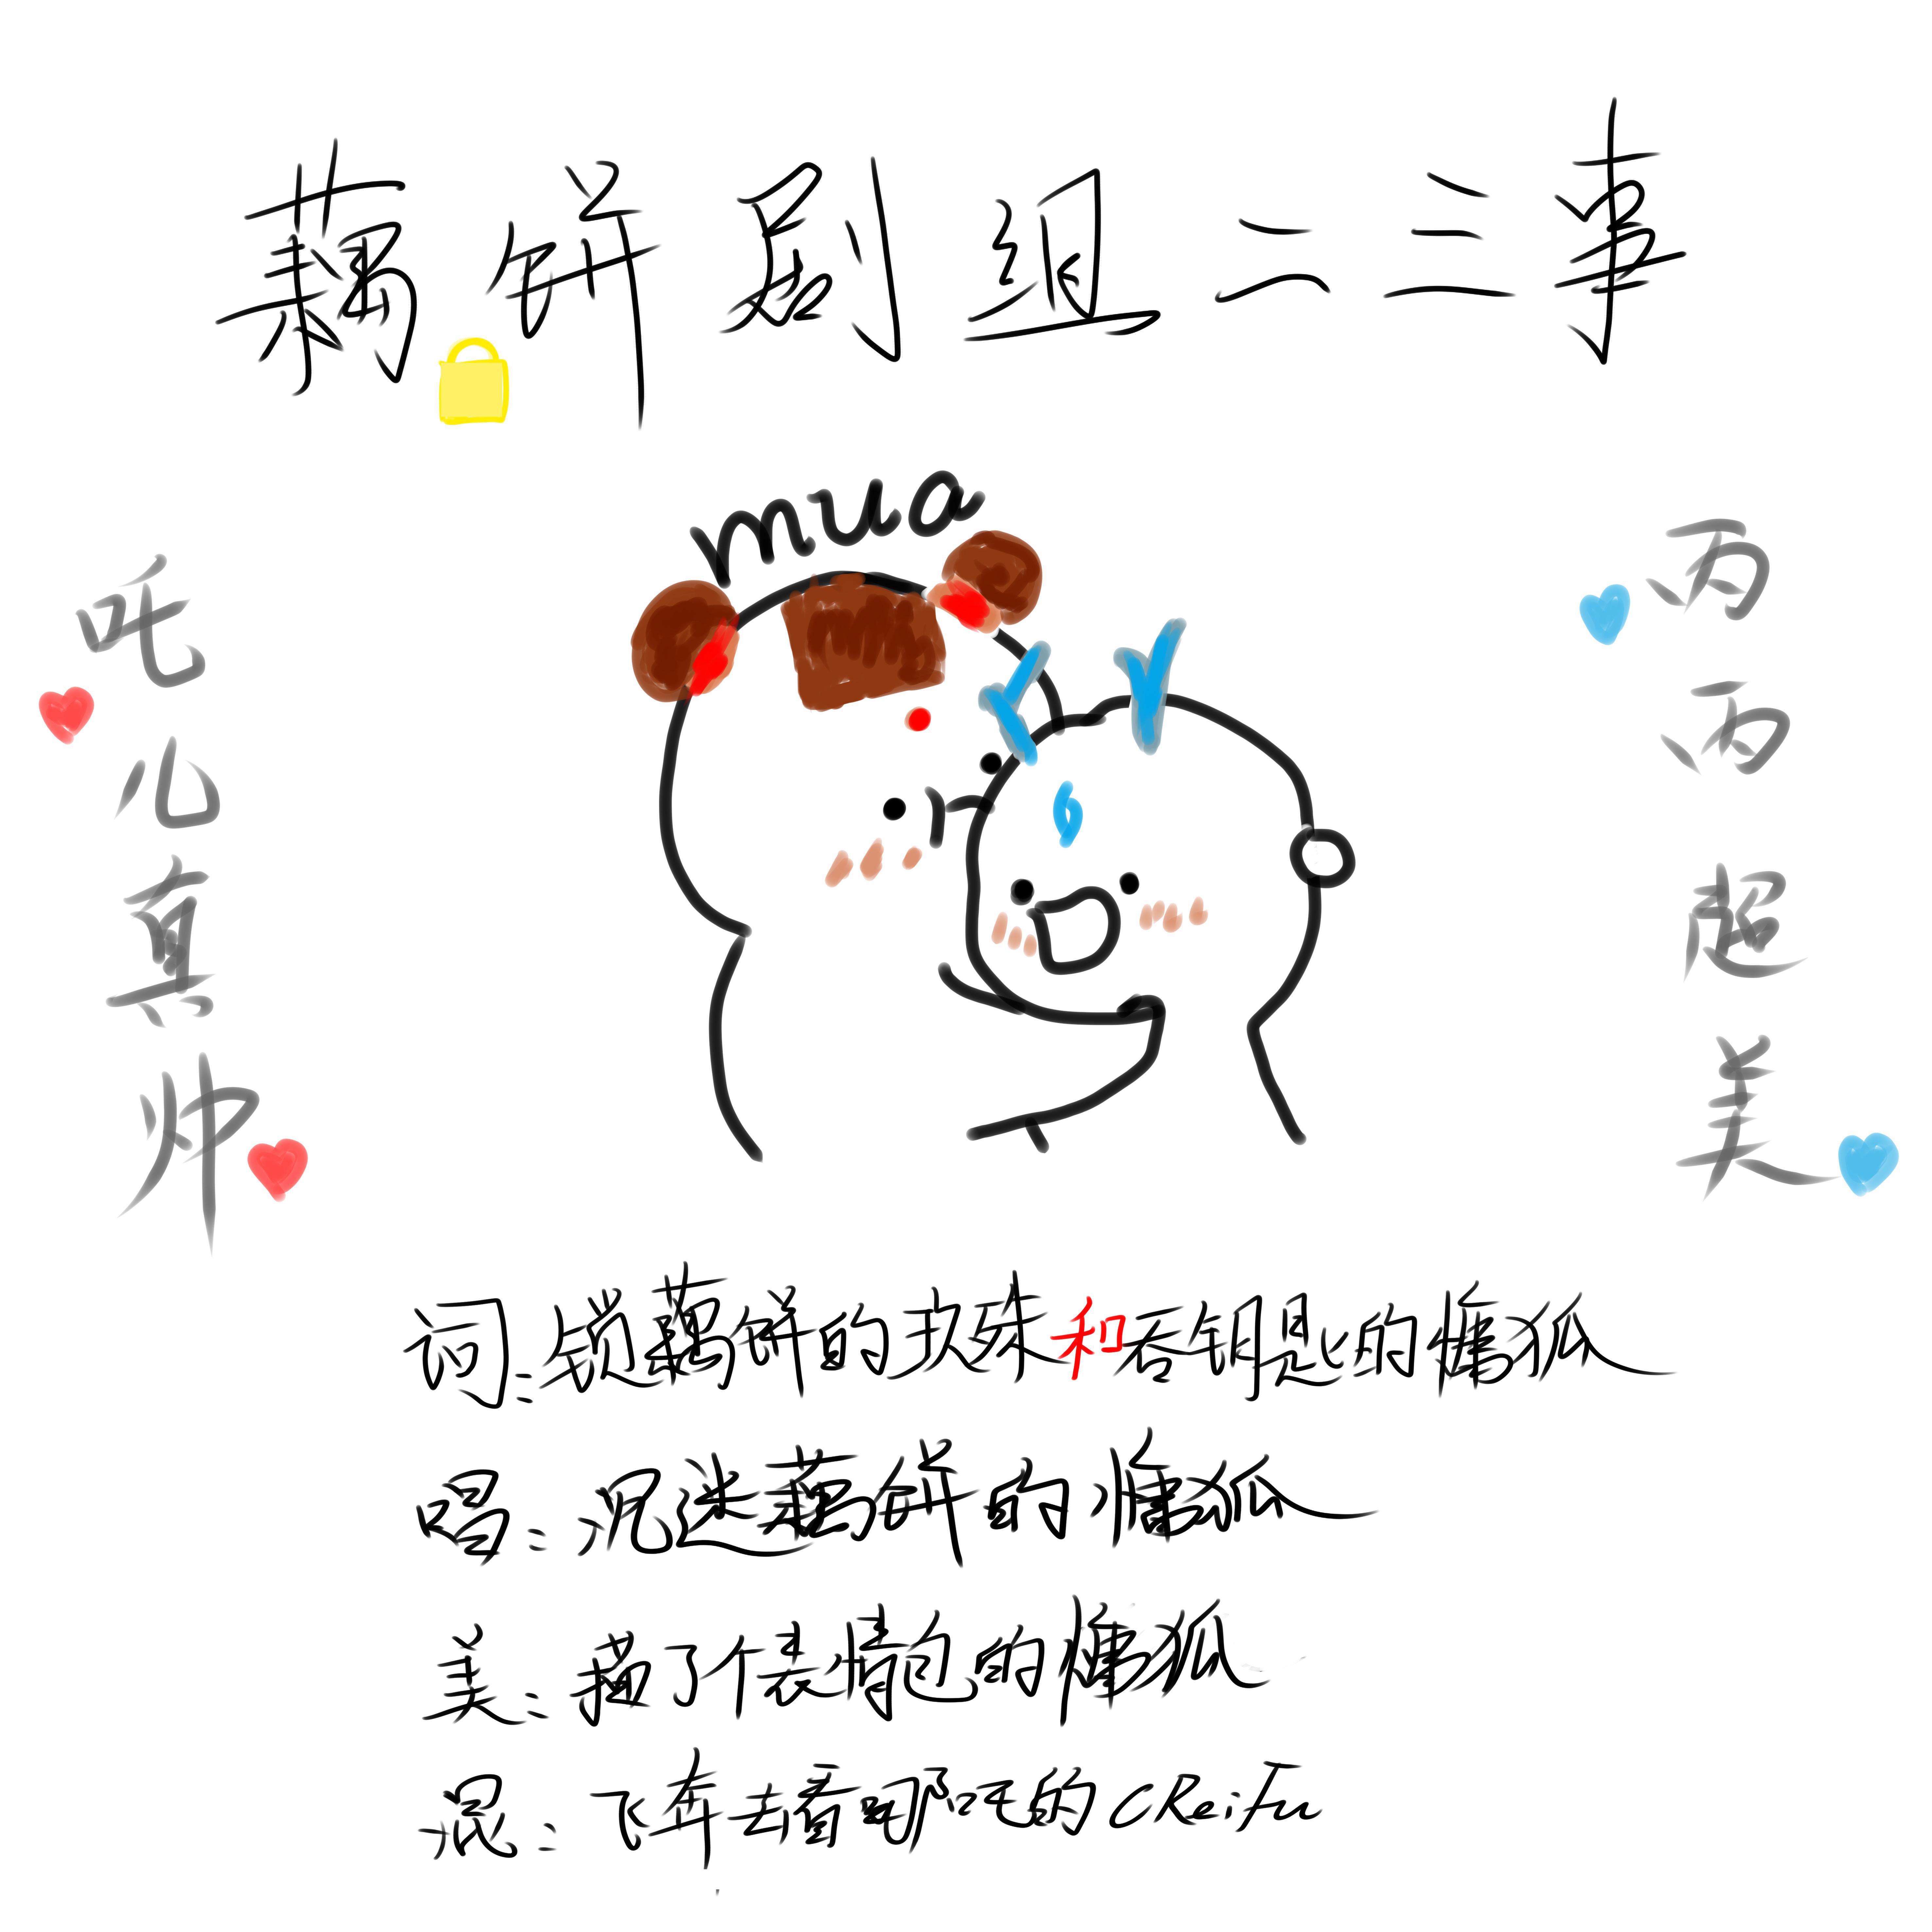 藕饼剧组一二三事
mua
吒儿真帅
丙丙超美
词：锁藕饼的玖殊和否钥匙的慵狐
唱：沉迷藕饼的慵狐
美：摘了个表情包的慵狐
混：飞车去看哪吒的cReifu